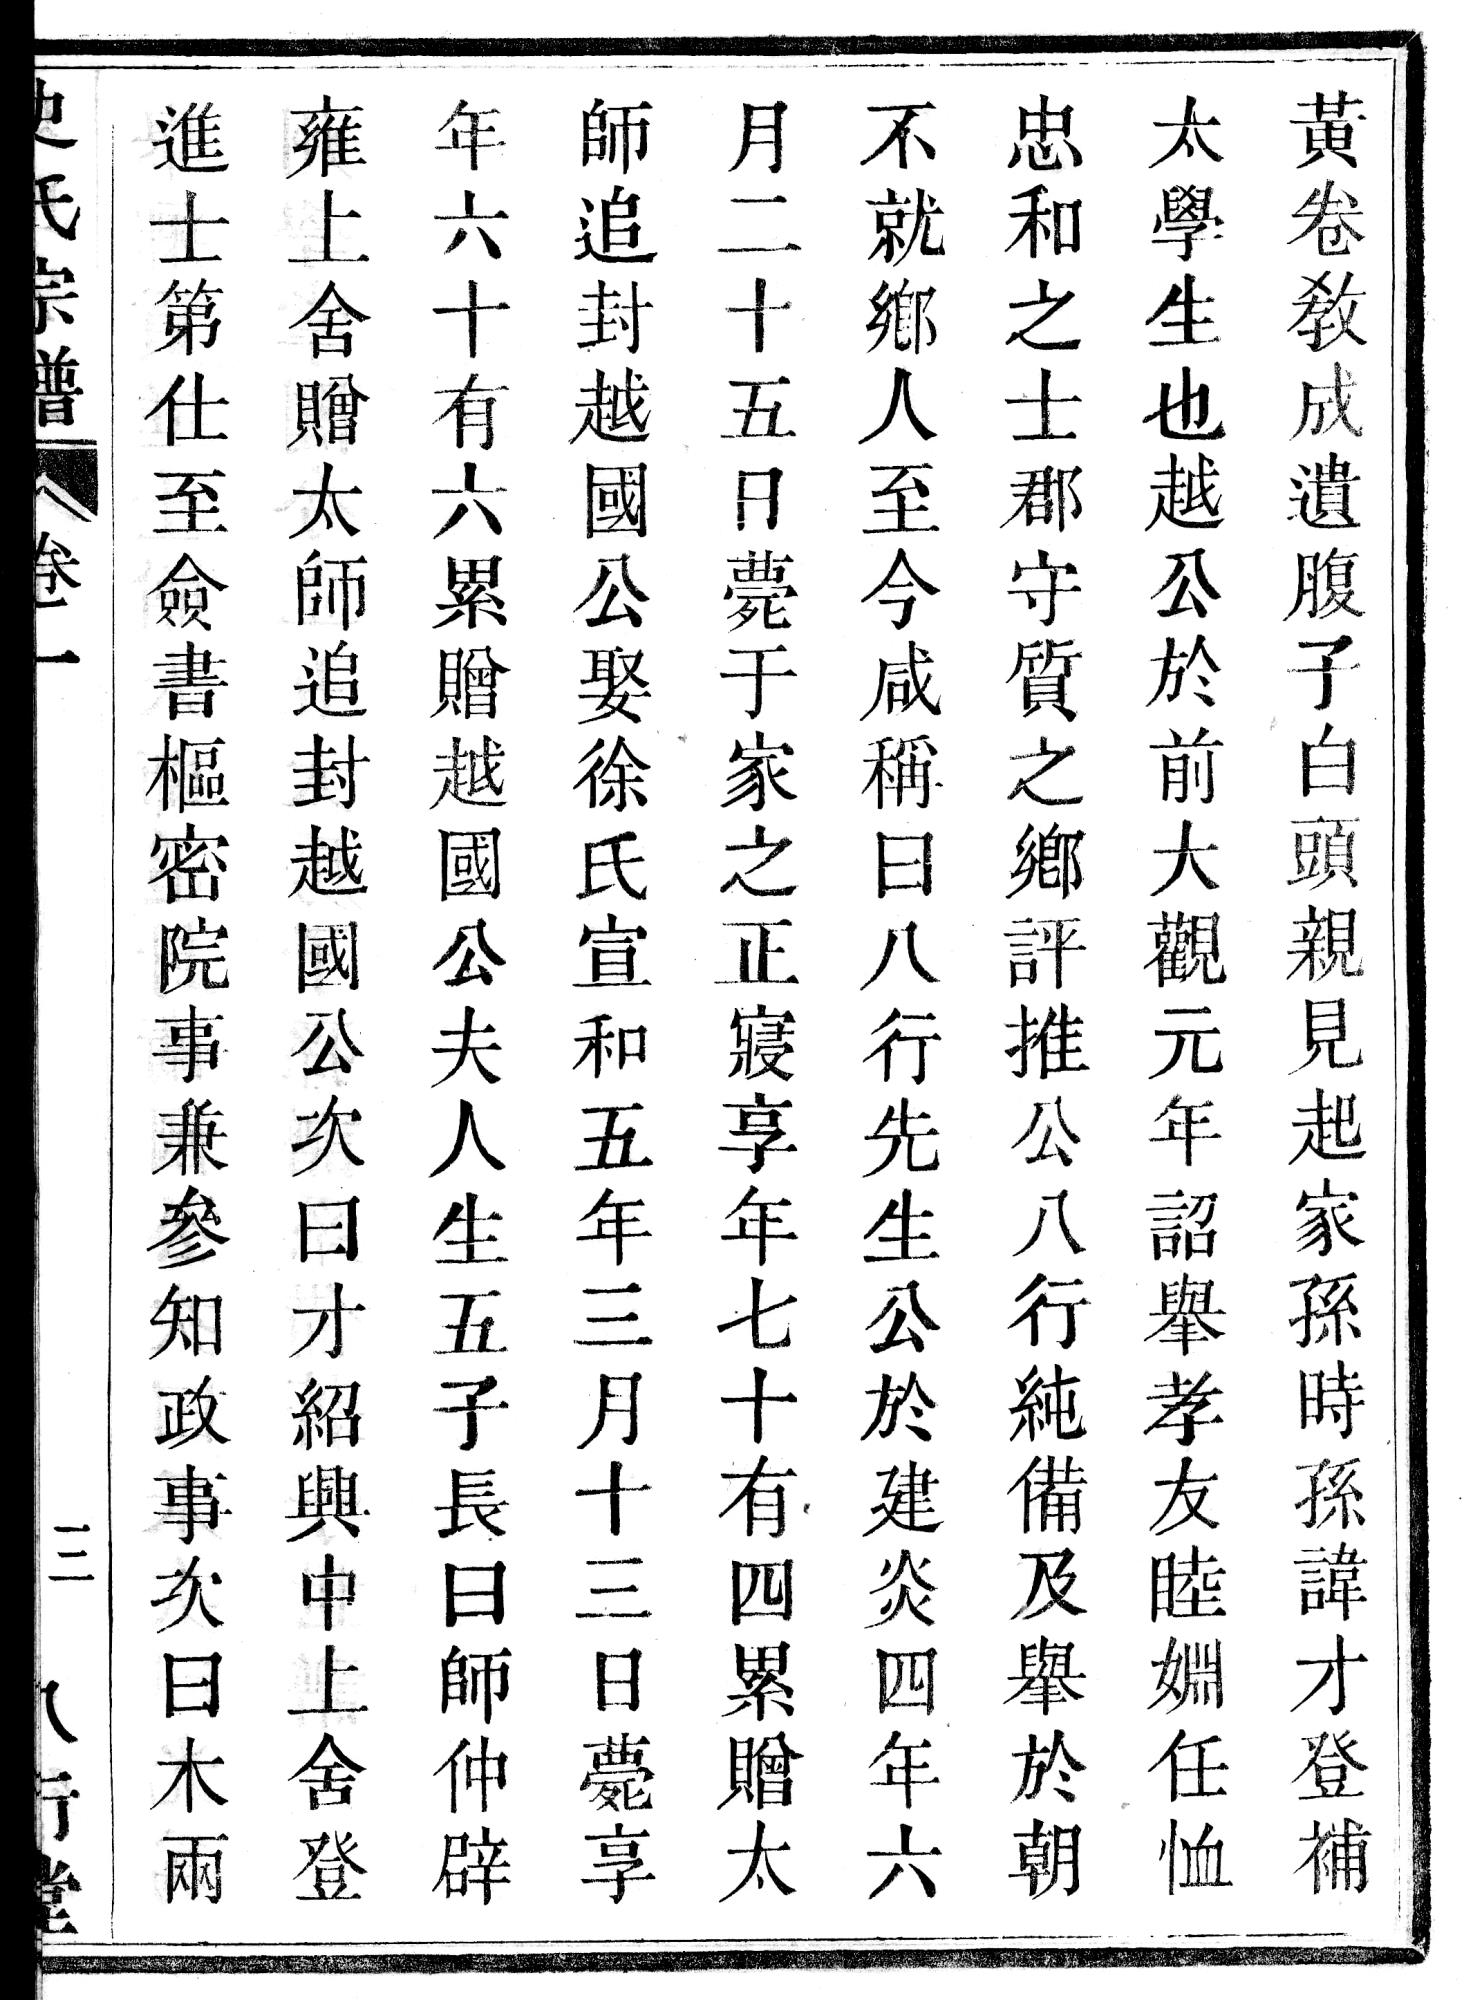 黃卷敎成遺腹子白頭親見起家孫時孫諱才登補
太學生也越公於前大觀元年詔舉孝友睦婣任恤
忠和之士郡守質之鄉評推公八行純備及舉於朝
不就鄉人至今咸稱曰八行先生公於建炎四年六
月二十五日薨于家之正寢享年七十有四累贈太
師追封越國公娶徐氏宣和五年三月十三日薨享
年六十有六累贈越國公夫人生五子長曰師仲辟
雍上舍贈太師追封越國公次曰才紹興中上舍登
進士第仕至僉書樞密院事兼參知政事次曰木兩
史氏宗譜 卷一 三 八行堂